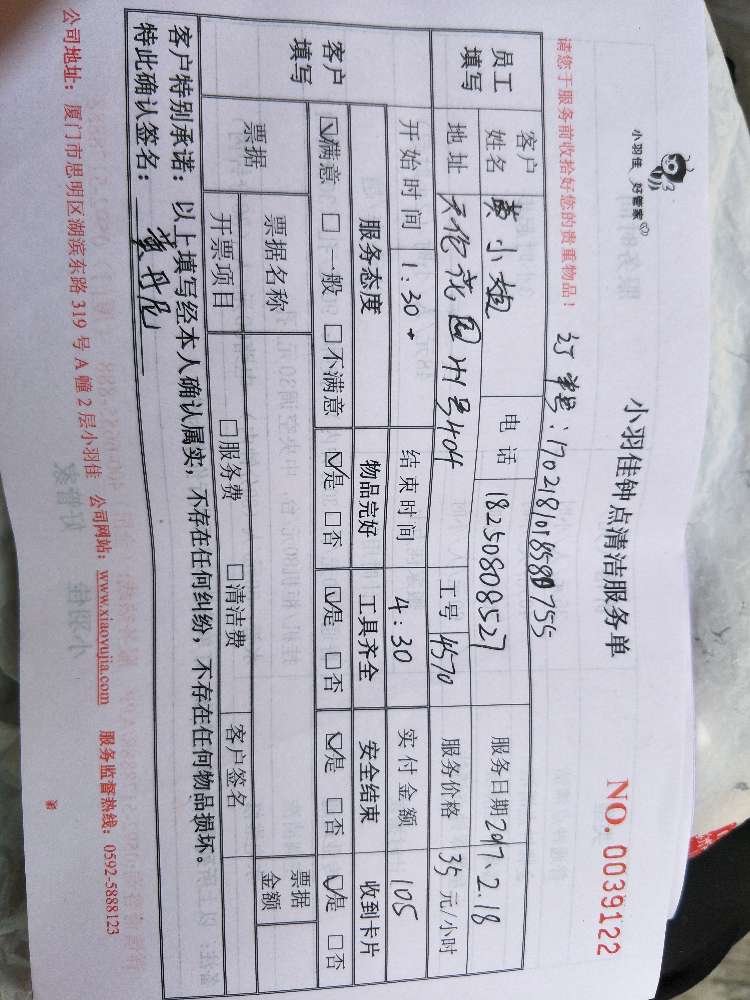 小羽佳 好管家
小羽佳钟点清洁服务单
NO. 0039122
请您于服务前收拾好您的贵重物品！
订单号：
员工填写
客户姓名 黄小姐 电话 18250808527 服务日期 2017.2.18
地址 天伦花园 404 工号 4570 服务价格 35 元/小时
开始时间 1:30 结束时间 4:30 实付金额 105
客户填写
服务态度 物品完好 工具齐全 安全结束 收到卡片
☑满意 □一般 □不满意 ☑是 □否 ☑是 □否 ☑是 □否 ☑是 □否
票据
票据名称 票据金额
开票项目 □服务费 □清洁费 客户签名
客户特别承诺：以上填写经本人确认属实，不存在任何纠纷，不存在任何物品损坏。
特此确认签名：黄丹尼
公司地址：厦门市思明区湖滨东路 319 号 A 幢 2 层小羽佳 公司网站：www.xiaoyujia.com 服务监督热线：0592-5888123